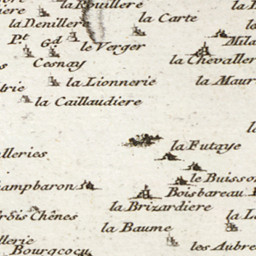 la Rouillere
la Denillere
la Carte
Pt
Gd
le Verger
Mila
la Chevaller
Cesnay
la Lionnerie
la Maur
trie
la Caillaudiere
la Futaye
lleries
le Buisson
hampbaron
Boisbareau
la Brizardiere
Chênes
la Baume
llerie
les Aubre
Bourgcocu